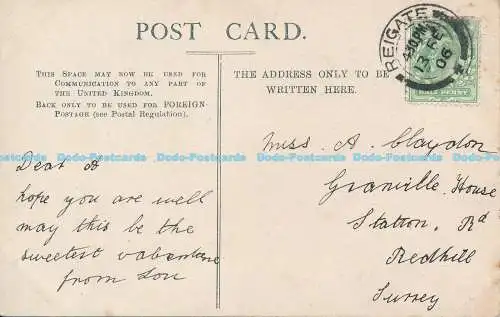 POST CARD.
THIS SPACE MAY NOW BE USED FOR
COMMUNICATION TO ANY PART OF
THE UNITED KINGDOM.
BACK ONLY TO BE USED FOR FOREIGN
POSTAGE (see Postal Regulation).
THE ADDRESS ONLY TO BE
WRITTEN HERE.
REIGATE
4.30PM
13 FE
06
HALF PENNY
Dear A
hope you are well
may this be the
sweetest
from Lou
Miss A. Claydon
Granville House
Station Rd
Redhill
Surrey
Dodo-Postcards Dodo-Postcards Dodo-Postcards Dodo-Postcards Dodo-Postcards
Dodo-Postcards Dodo-Postcards Dodo-Postcards Dodo-Postcards Dodo-Postcards